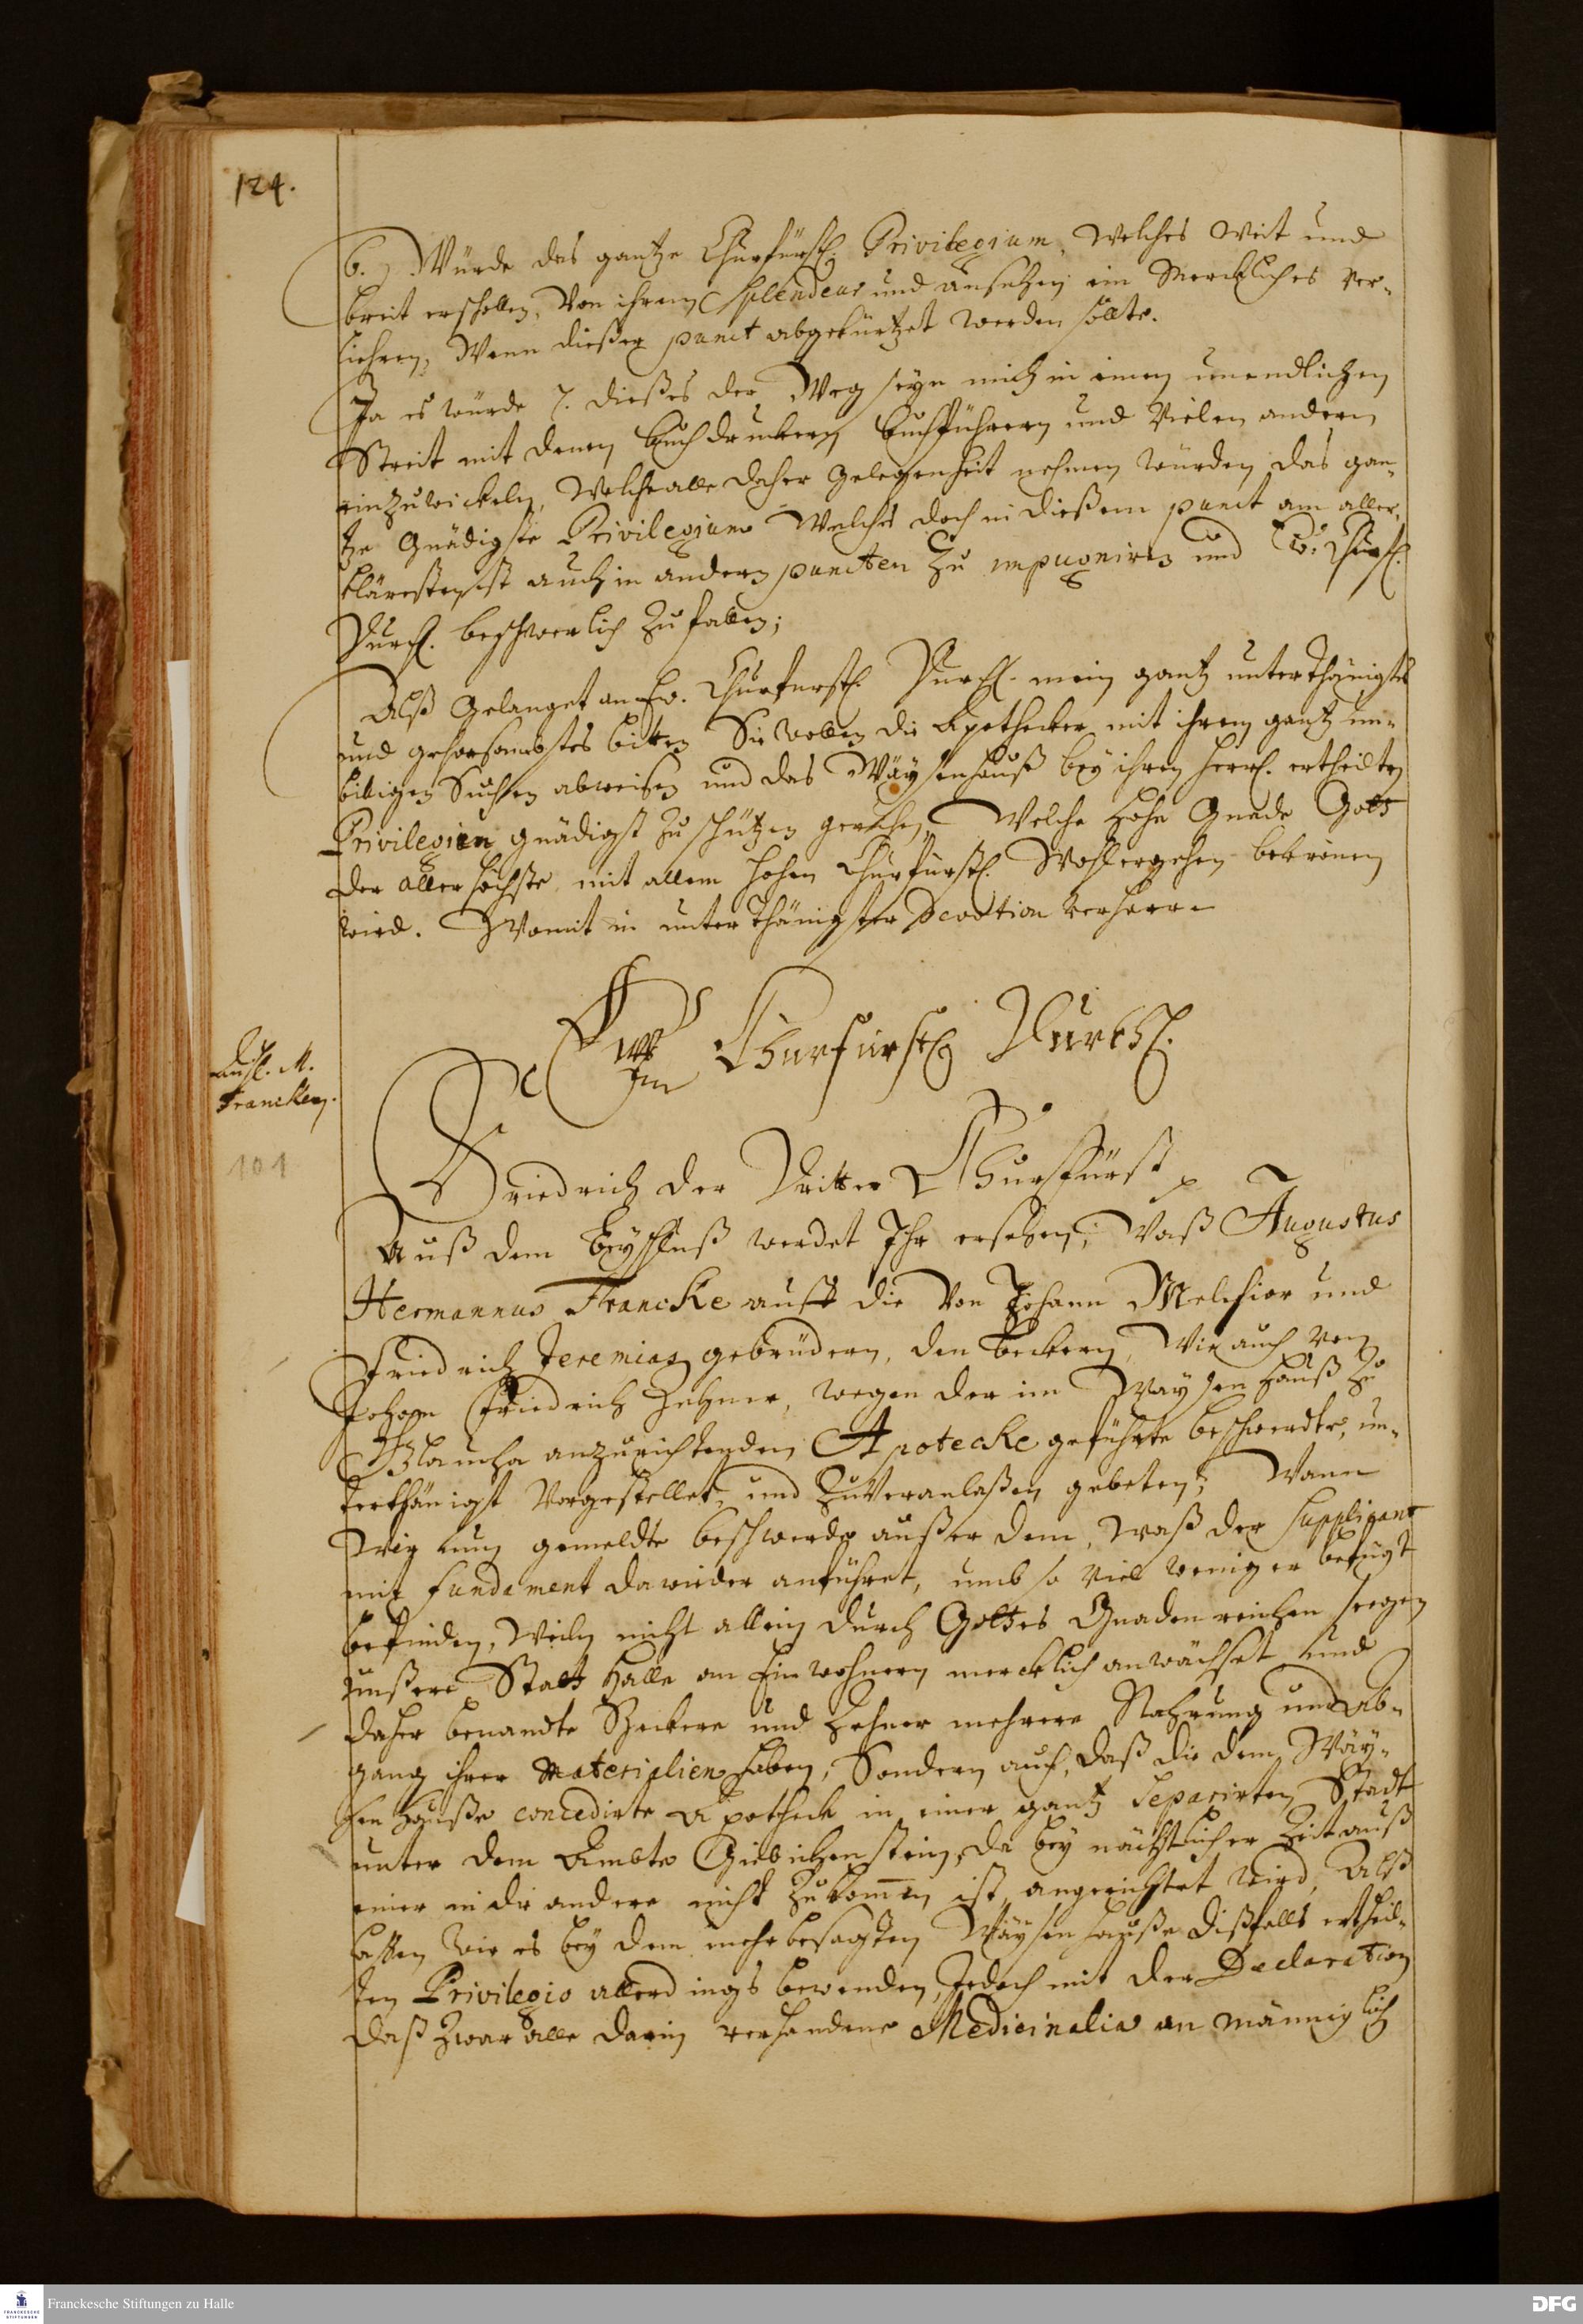 124.
6.) Würde das gantze Churfürstl. Privilegium, Welches weit und
breit erschollen, Von ihrem Splendeur und ansehen ein Merckliches ver-
liehren, Wenn dießer punct abgekürtzet werden sollte.
Ja es würde 7. dießes der Weg seyn mich in einen unendlichen
Streit mit denen buchdruckern buchführern und Vielen andern
einzuwickeln, Welche alle daher gelegenheit nehmen würden, das gan-
tze Gnädigste Privilegium Welches doch in dießem punct am aller-
kläresten ist auch in andern puncten Zu impugniren und Ew. Churfl.
Durchl. beschwerlich Zu fallen;
Alß gelanget an Ew. Churfürstl. Durchl. mein gantz unterthänigstes
und gehorsambstes bitten Sie wollen die Apothecker mit ihrem gantz un-
billigen Suchen abweisen und das Wäysenhauß bey ihren herrl. ertheilten
Privilegien gnädigst zu schützen geruhen, Welche hohe Gnade Gott
der allerhöchste mit allem hohen Churfürstl. Wohlergehen bekrönen
wird. Womit in unterthänigster Devotion verharre
Ew. Churfürstl. Durchl.
Ausl. M.
Francken.
101
Friedrich der Dritte Churfürst
Auß dem beyschluß werdet Ihr ersehen, Waß Augustus
Hermannus Francke auff die Von Johann Melchior und
Friedrich Jeremias gebrüdern, den Beckern, Wie auch von
Johann Friedrich Zehner, wegen der im Waysenhauß zu
Glaucha anzurichtenden Apotecke geführte beschwerdte, un-
terthänigst Vorgestellet, und Zu Veranlaßen gebeten; Wann
Wir nun gemeldte beschwerde außer dem, Waß der Supplicant
mit fundament dawieder anführet, umb so viel weniger befugt
befinden, Weiln nicht allein durch Gottes Gnadenreichen seegen
unßere Statt Halle an Einwohnern mercklich anwächset und
daher benandte Beckere und Zehner mehrere Nahrung und Ab-
gang ihrer Materialien haben, Sondern auch, daß die dem Wäy-
senhauße concedirte Apotheck in einer gantz separirten Stadt
unter dem Ambte Giebichenstein, da bey nächtlicher Zeit auß
einer in die andere nicht Zu kommen ist, angerichtet wird, Alß
laßen wir es bey dem mehrbesagten Wäysenhauße dißfalls erthei-
ten Privilegio allerdings bewenden, Jedoch mit der Declaration
daß Zwar alle darin verhandene Medicinalia an männiglich
Franckesche Stiftungen zu Halle
FRANCKESCHE STIFTUNGEN
DFG